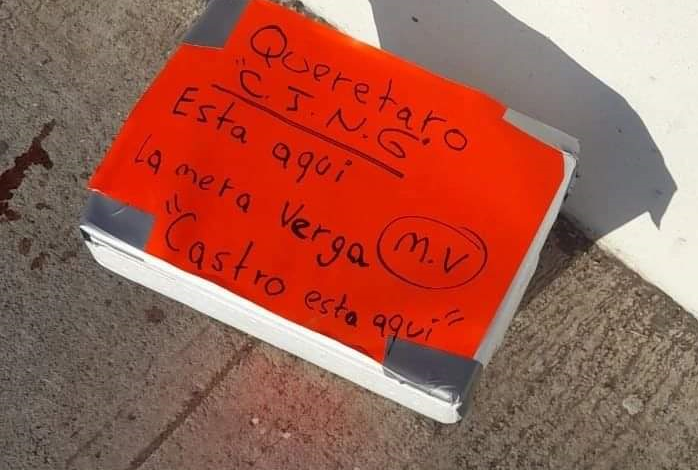 Queretaro
"C.J.N.G"
Esta aqui
La mera Verga M.V
"Castro esta aqui"